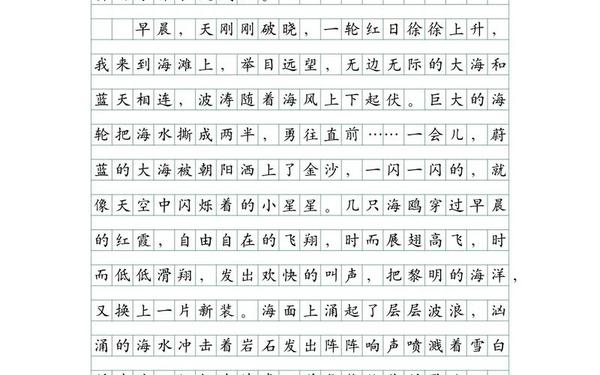 早晨，天刚刚破晓，一轮红日徐徐上升，
我来到海滩上，举目远望，无边无际的大海和
蓝天相连，波涛随着海风上下起伏。巨大的海
轮把海水撕成两半，勇往直前……一会儿，蔚
蓝的大海被朝阳洒上了金沙，一闪一闪的，就
像天空中闪烁着的小星星。几只海鸥穿过早晨
的红霞，自由自在的飞翔，时而展翅高飞，时
而低低滑翔，发出欢快的叫声，把黎明的海洋，
又换上一片新装。海面上涌起了层层波浪，汹
涌的海水冲击着岩石发出阵阵响声喷溅着雪白